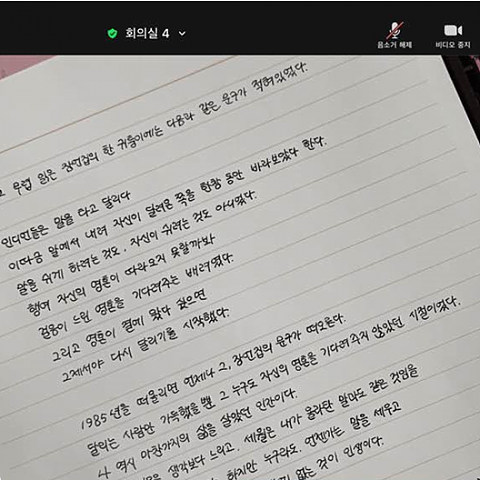 회의실 4
음소거 해제
비디오 중지
무렵 읽은 잠언집의 한 귀퉁이에는 다음과 같은 문구가 적혀있었다.
인디언들은 말을 타고 달리다
이따금 말에서 내려 자신이 달려온 쪽을 한참 동안 바라보았다 한다.
말을 쉬게 하려는 것도, 자신이 쉬려는 것도 아니었다.
행여 자신의 영혼이 따라오지 못할까봐
걸음이 느린 영혼을 기다려주는 배려였다.
그리고 영혼이 곁에 왔다 싶으면
그제서야 다시 달리기를 시작했다.
1985년을 떠올리면 언제나 그, 잠언집의 문구가 떠오른다.
달리는 사람만 가득했을 뿐, 그 누구도 자신의 영혼을 기다려주지 않았던 시절이었다.
나 역시 마찬가지의 삶을 살았던 인간이다.
생각보다 느리고, 세월은 내가 올라탄 말과도 같은 것임을
하지만 누구라도, 언젠가는 말을 세우고
없는 것이 인생이다.